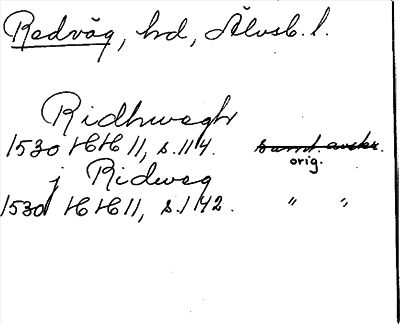 Redväg, hd, Älvsb. l.
Ridhwegh
1530 HH 11, s. 114. samt. avskr.
orig.
j Ridweg
1530 HH 11, s. 142. " "